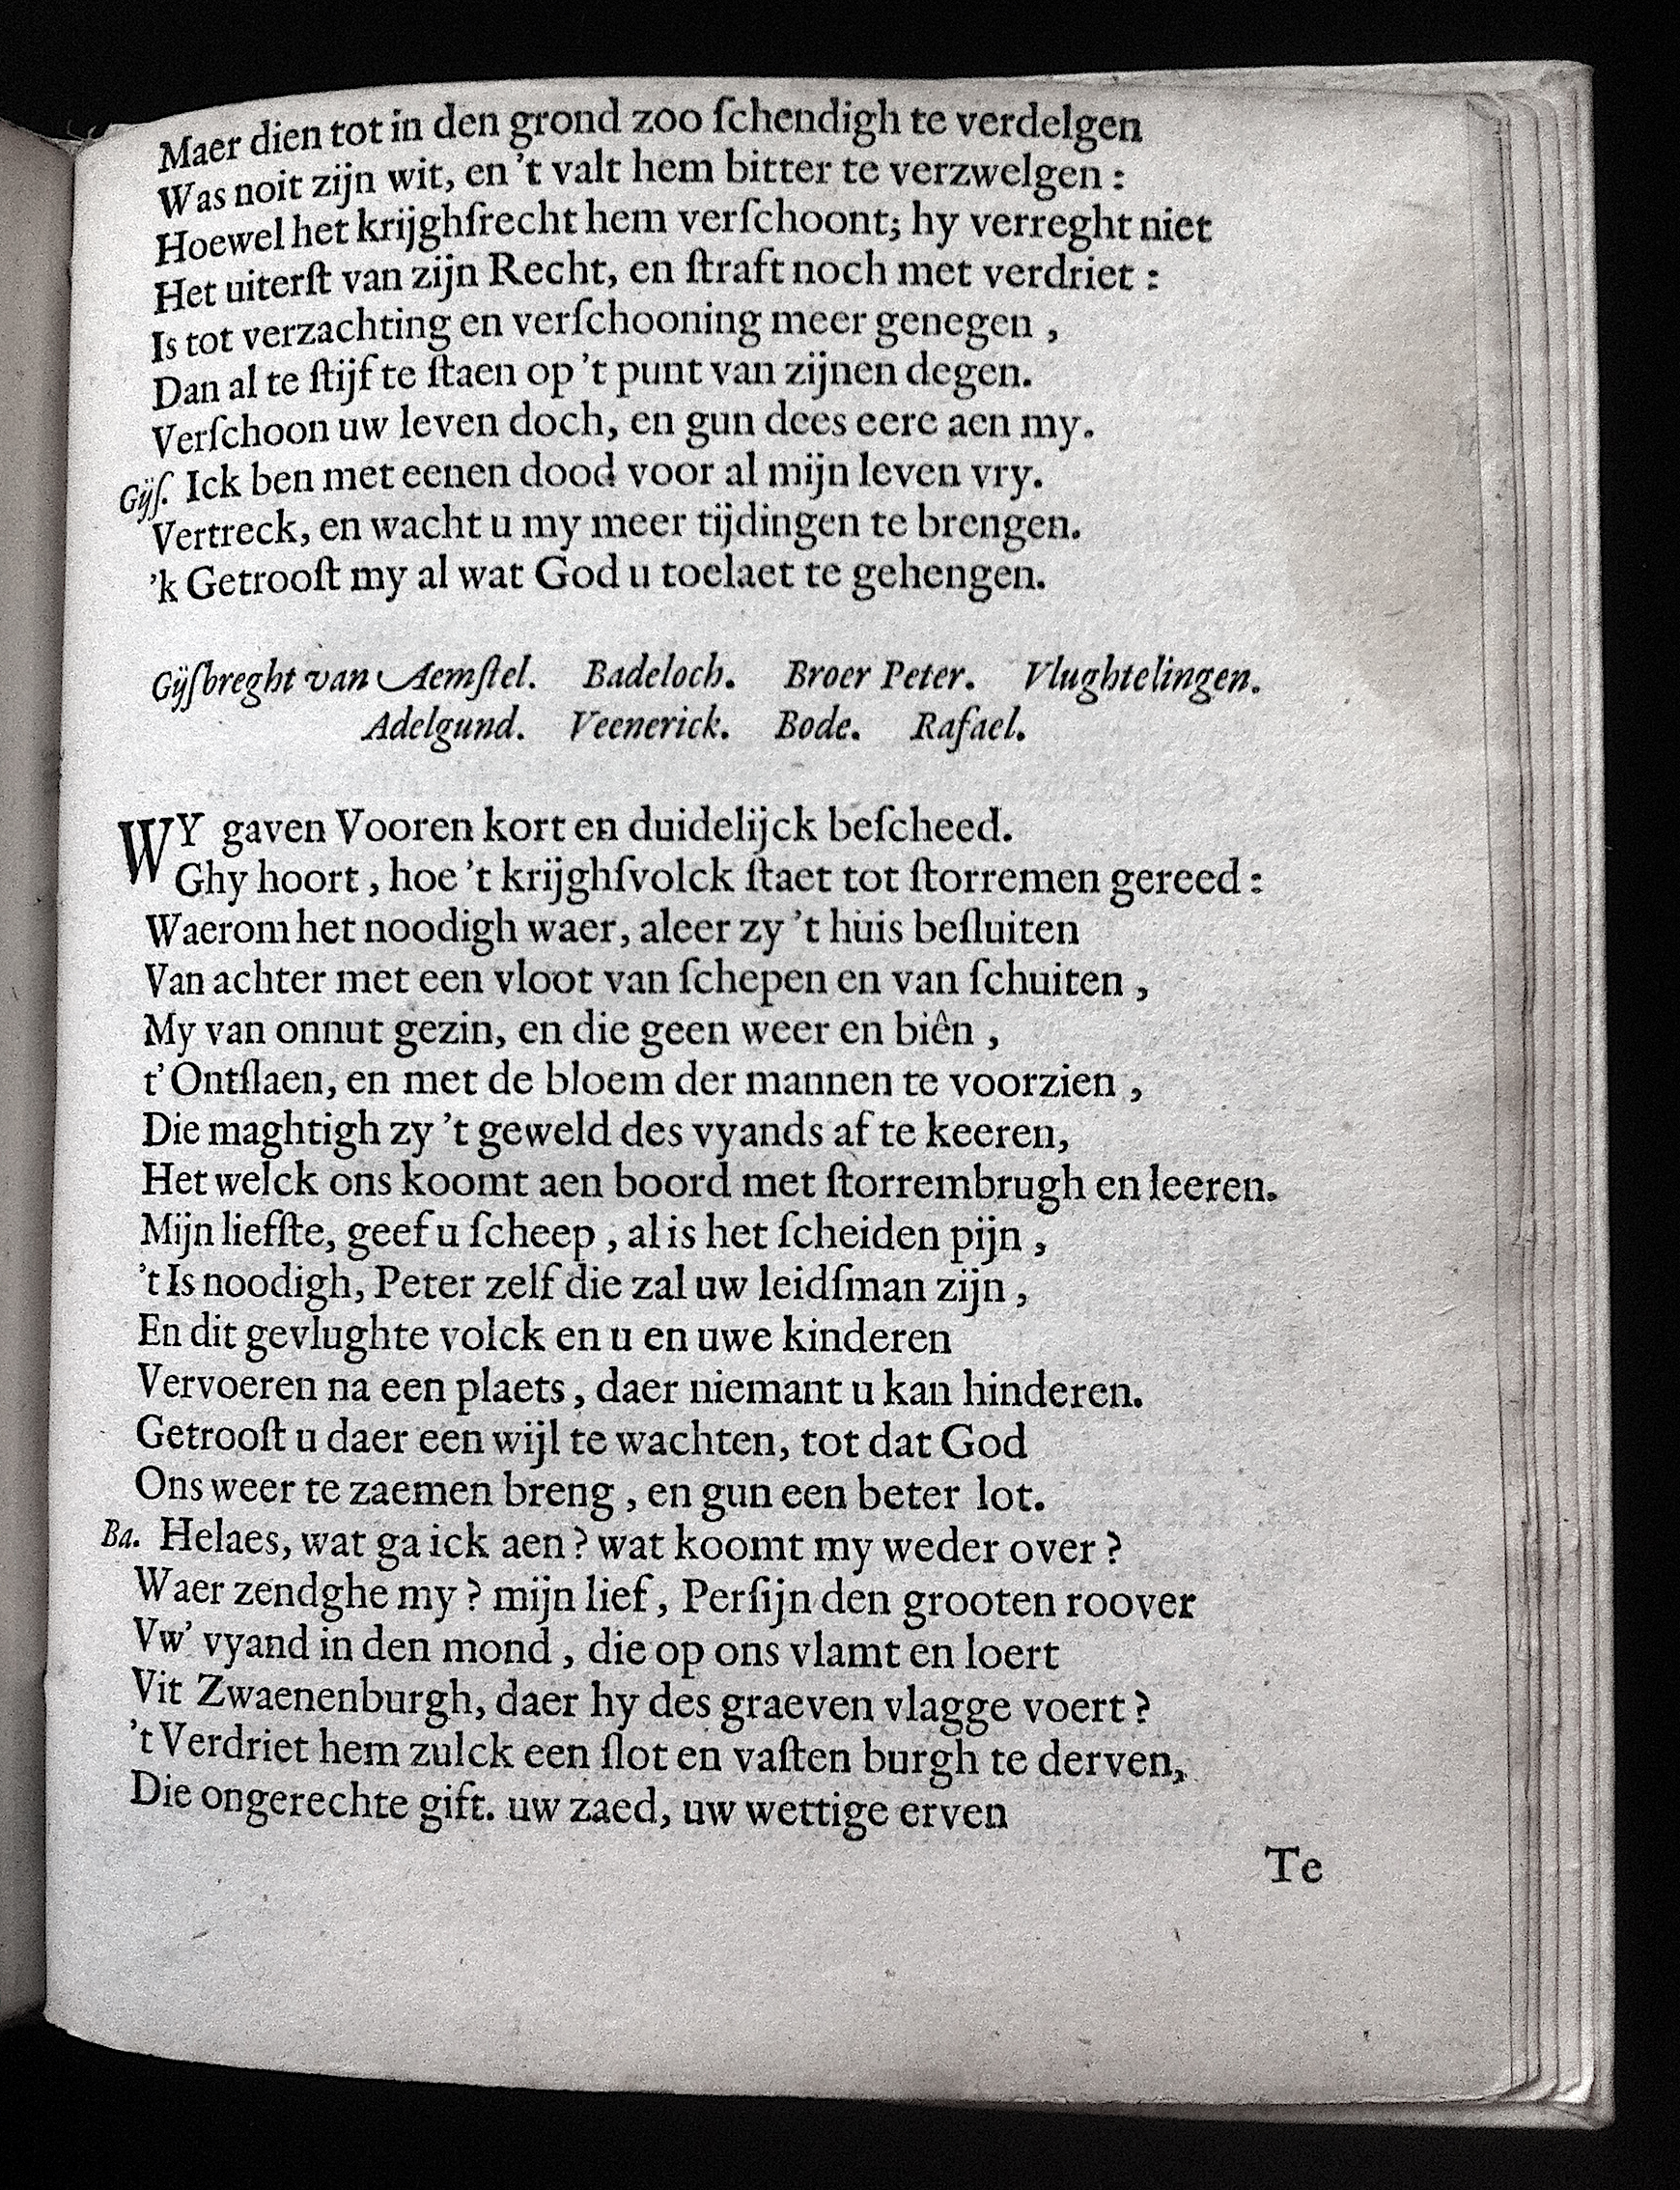 Maer dien tot in den grond zoo ſchendigh te verdelgen
Was noit zijn wit, en 't valt hem bitter te verzwelgen :
Hoewel het krijghſrecht hem verſchoont; hy verreght niet
Het uiterſt van zijn Recht, en ſtraft noch met verdriet :
Is tot verzachting en verſchooning meer genegen ,
Dan al te ſtijf te ſtaen op 't punt van zijnen degen.
Verſchoon uw leven doch, en gun dees eere aen my.
Gijſ. Ick ben met eenen dood voor al mijn leven vry.
Vertreck, en wacht u my meer tijdingen te brengen.
'k Getrooſt my al wat God u toelaet te gehengen.
Gijſbreght van Aemſtel. Badeloch. Broer Peter. Vlughtelingen.
Adelgund. Veenerick. Bode. Rafael.
WY gaven Vooren kort en duidelijck beſcheed.
Ghy hoort , hoe 't krijghſvolck ſtaet tot ſtorremen gereed :
Waerom het noodigh waer, aleer zy 't huis beſluiten
Van achter met een vloot van ſchepen en van ſchuiten ,
My van onnut gezin, en die geen weer en biên ,
t' Ontſlaen, en met de bloem der mannen te voorzien ,
Die maghtigh zy 't geweld des vyands af te keeren,
Het welck ons koomt aen boord met ſtorrembrugh en leeren.
Mijn liefſte, geef u ſcheep , al is het ſcheiden pijn ,
't Is noodigh, Peter zelf die zal uw leidſman zijn ,
En dit gevlughte volck en u en uwe kinderen
Vervoeren na een plaets , daer niemant u kan hinderen.
Getrooſt u daer een wijl te wachten, tot dat God
Ons weer te zaemen breng , en gun een beter lot.
Ba. Helaes, wat ga ick aen ? wat koomt my weder over ?
Waer zendghe my ? mijn lief , Perſijn den grooten roover
Vw' vyand in den mond , die op ons vlamt en loert
Vit Zwaenenburgh, daer hy des graeven vlagge voert ?
't Verdriet hem zulck een ſlot en vaſten burgh te derven,
Die ongerechte gift. uw zaed, uw wettige erven
Te